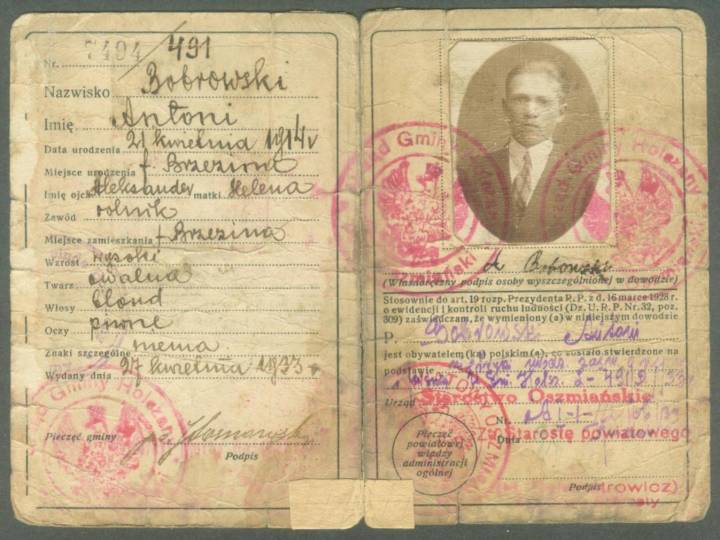 Nr. 7494/491
Nazwisko Bobrowski
Imię Antoni
Data urodzenia 21 kwietnia 1914 r
Miejsce urodzenia f. Brzezina
Imię ojca Aleksander matki Helena
Zawód rolnik
Miejsce zamieszkania f. Brzezina
Wzrost wysoki
Twarz owalna
Włosy blond
Oczy piwne
Znaki szczególne niema
Wydany dnia 27 kwietnia 1933 r
Pieczęć gminy
Podpis
Gminy Holszany
(Własnoręczny podpis osoby wyszczególnionej w dowodzie)
Stosownie do art. 19 rozp. Prezydenta R. P. z d. 16 marca 1928 r.
o ewidencji i kontroli ruchu ludności (Dz. U. R. P. Nr. 32, poz.
309) zaświadczam, że wymieniony (a) w niniejszym dowodzie
P. Bobrowski Antoni
jest obywatelem (ką) polskim (a), co zostało stwierdzone na
podstawie
Urząd Starostwo Oszmiańskie
Nr.
Dnia
Starostę powiatowego
Pieczęć
powiatowej
władzy
administracji
ogólnej
Podpis